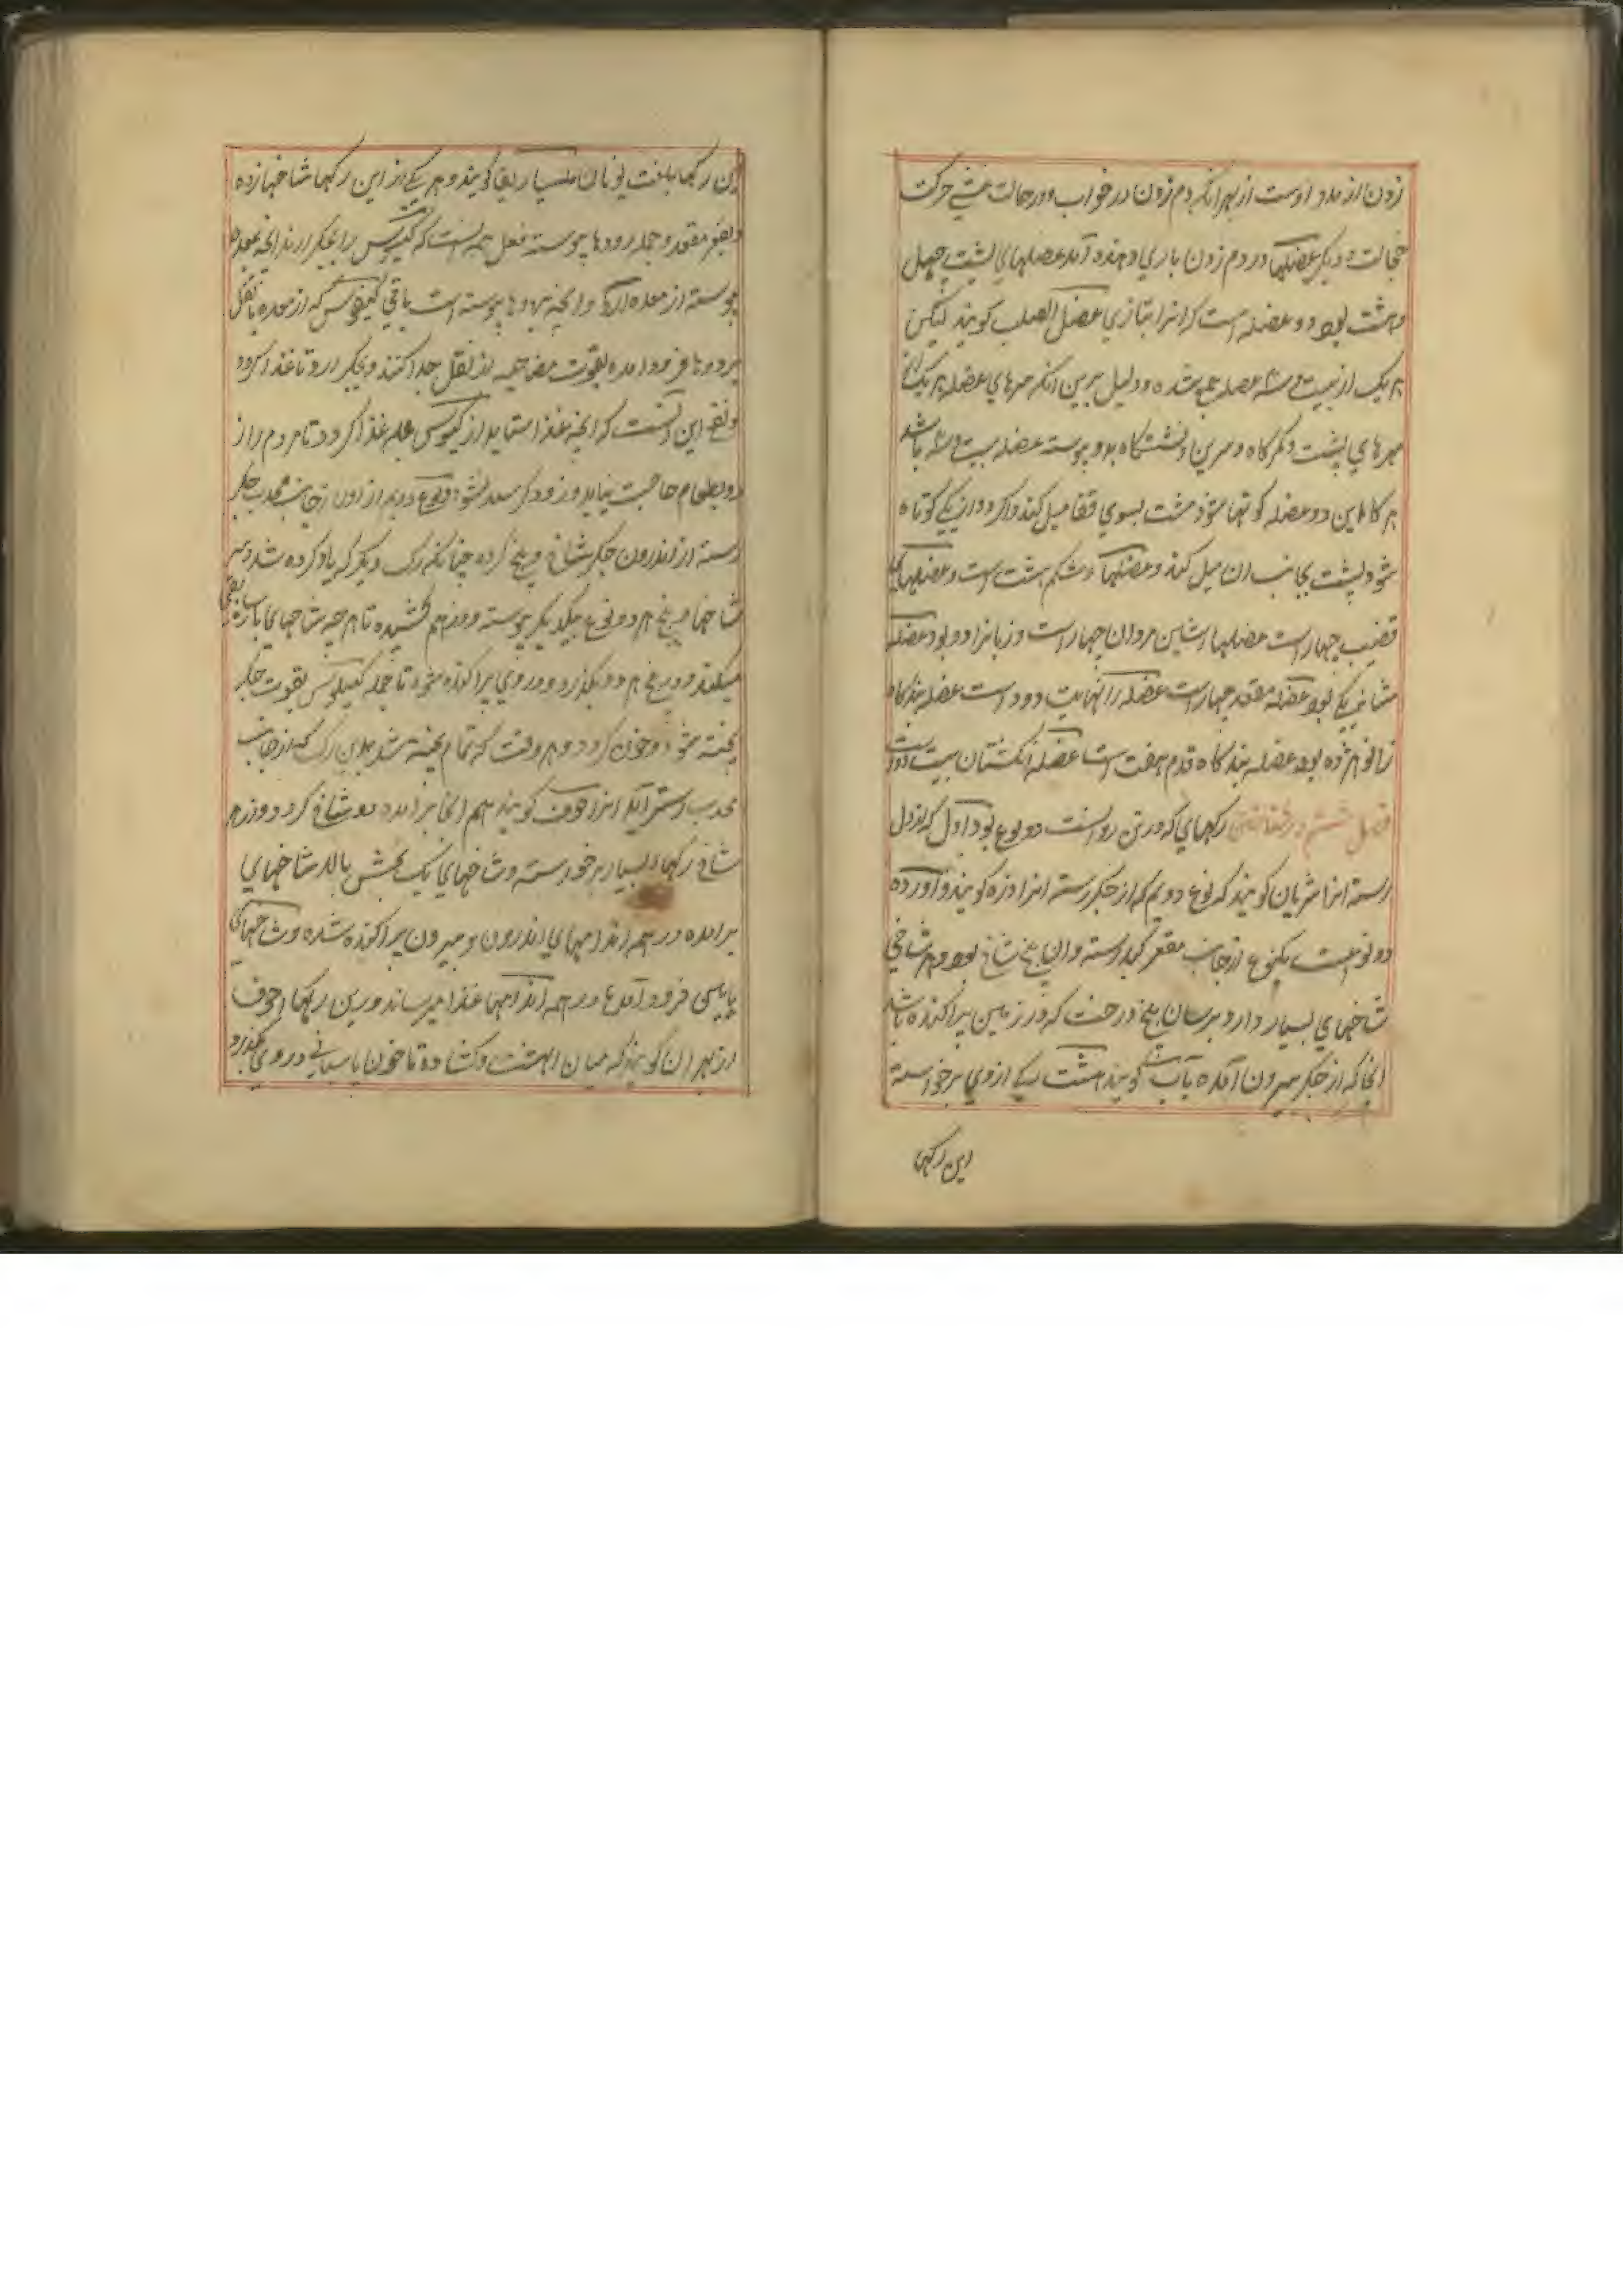 زدن از مدد اوست از بهر آنکه دم زدن در خواب و در حالت حرکت
و دیگر عضلها در دم زدن یاری دهنده آمد عضلهای پشت چهل
و هشت بود دو عضله است که انرا بتازی عضل الصلب کویند لیکن
هر یک از بیست و سه عضله شده و دلیل برین انکه سرهای عضله هر یک از
مهرهای پشت و کمرکاه و سرین و نشستکاه بدو پیوسته عضله بیست و سه باشد
هر کاه این دو عضله کوتها شود پشت بسوی قفا میل کند و اکر دو از یکی کوتاه
شود پشت بجانب ان میل کند و عضلهاء شکم هشت است و عضلهای
قضیب چهار است عضلها مردان چهار است و زنانرا دو بود عضله
مثانه یکی بود عضله مقعد چهار است عضله دو است عضله بندکاه
زانو نزده بود عضله بندکاه قدم هفت است عضله انکشتان بیست دو است
فصل رکهای که در تن روانست دو نوع بود اول که از دل
رسته انرا شریان کویند که نوع دویم که از جکر رسته انرا ورده کویند و آورده
دو نوعست یکنوع از جانب مقعر کبد رسته و ان پنج شاخ بود و هر شاخی
شاخهای بسیار دارد برسان بیخ درخت که در زمین پراکنده باشد
انجا که از جکر بیرون آمده باب کویند هشت یکی از وی برخواسته
این رکها
این رکها بلغت یونان ماساریقا کویند و هر یکی از این رکها شاخها زده
و بقعر مقعد و جمله رودها پیوسته فعل همه انست که کیلوس را بجکر ارند انچه بمعده
پیوسته از معده ارد و انچه برودها پیوسته است باقی کیلوس که از معده با ثفل
برودها فرود امده بقوت هاضمه از ثفل جدا کنند و بجکر ارد تا غذا کردد
و نفع این انست که انچه غذا را شاید از کیلوس همه غذا کردد تا مردم را از
بطعام حاجت نیاید و زود کرسنه نشود نوع دویم از اورده از جانب محدب جکر
رسته از اندرون جکر شاخ و بیخ کرده چنانکه رک دیکر که یاد کرده شد و سر
شاخها و بیخ هر دو نوع بیکدیکر پیوسته و در هم کشیده تا هر چه شاخهای ماساریقا
میکند در بیخ هر دو بکذرد و در وی پراکنده شود تا جمله کیلوس بقوت جکر
پخته شود و خون کردد و هر وقت که تمام پخته شد بدین رک که از جانب
محدب رسته آید انرا اجوف کویند هم انجا برامده دو شاخ کردد و از هر
شاخ رکهاء بسیار برخواسته و شاخهای یک بخش بالا شاخهای
برامده در همه اندامهای اندرون و بیرون پراکنده شده و شاخهای
پایین فرود آمده در همه اندامها غذا میرساند و این رکها اجوف
از بهر ان کویند که میان انهاست و کشاده تا خون باسانی در وی بکذرد